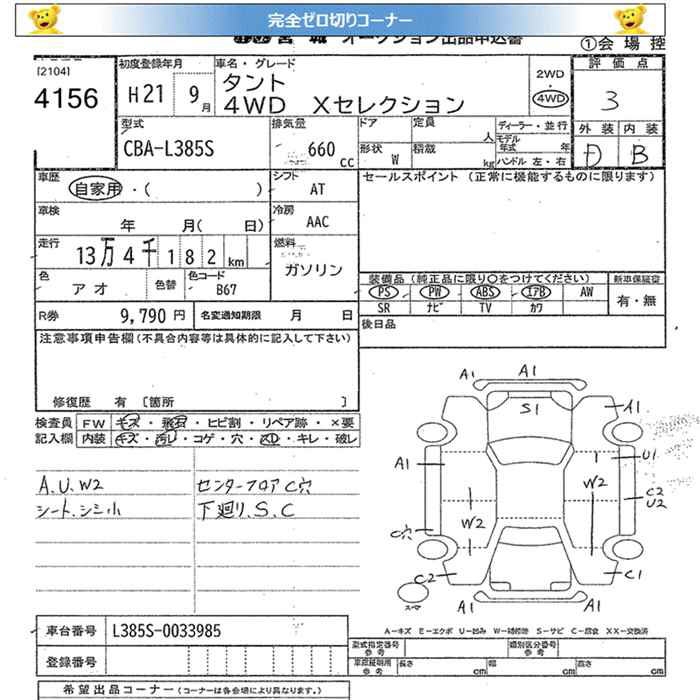 完全ゼロ切りコーナー
オークション出品申込書
①会場控
[2104]
4156
初度登録年月
H21 9月
車名・グレード
タント
4WD Xセレクション
2WD
・
4WD
評価点
3
外装 内装
D B
型式
CBA-L385S
排気量
660 cc
ドア 定員 人
形状 W 積載 kg
ディーラー・並行
モデル年式 年
ハンドル 左・右
車歴
自家用・( )
シフト
AT
セールスポイント (正常に機能するものに限ります)
車検
年 月( 日)
冷房
AAC
走行
13万4千182km
燃料
ガソリン
色
アオ
色替
色コード
B67
装備品 (純正品に限り○をつけてください)
新車保証書
PS PW ABS エアB AW
SR ナビ TV カワ
有・無
R券 9,790円
名変通知期限 月 日
後日品
注意事項申告欄(不具合内容等は具体的に記入して下さい)
修復歴 有 [箇所 ]
検査員 FW キズ・飛石・ヒビ割・リペア跡・×要
記入欄 内装 キズ・汚レ・コゲ・穴・スレ・キレ・破レ
A.U.W2
シート.シミ小
センターフロアC穴
下廻り.S.C
A1 A1
S1
A1
A1
U1
W2
C2
U2
W2
C穴
C2
C1
スマ
A1 A1
A-キズ E-エクボ U-凹み W-補修跡 S-サビ C-腐食 XX-交換済
車台番号 L385S-0033985
登録番号
型式指定番号 参考
類別区分番号 参考
車庫証明用 参考 長さ cm 幅 cm 高さ cm
希望出品コーナー (コーナーは各会場により異なります。)